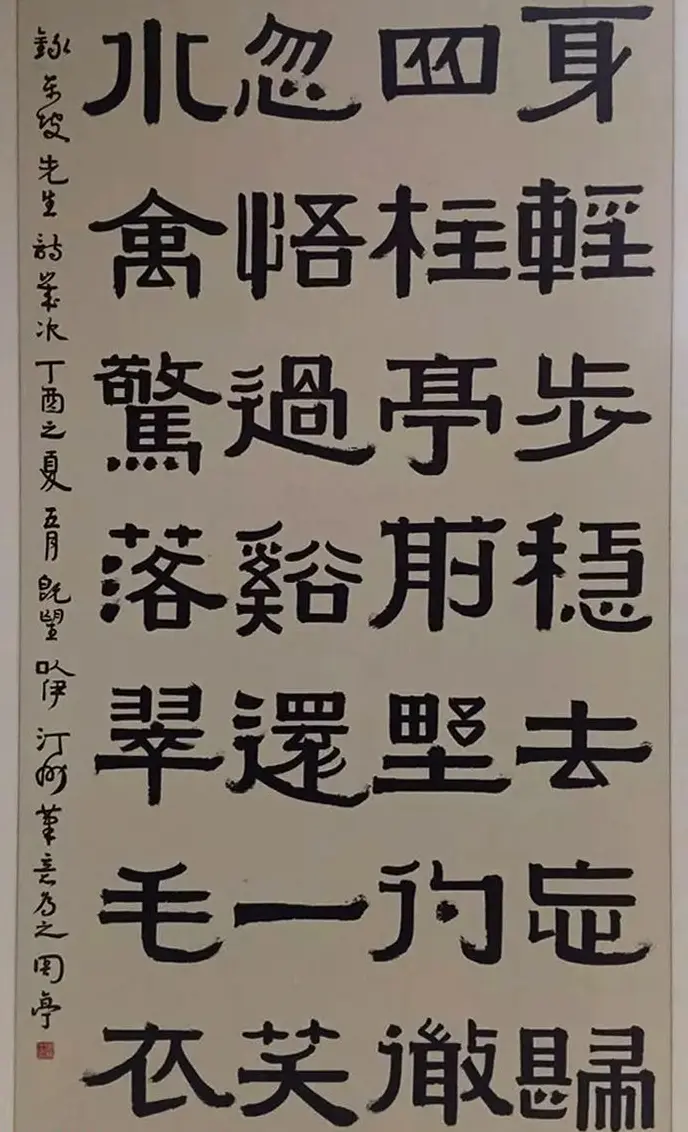 身輕步穩去忘歸
四柱亭前野彴微
忽悟過谿還一笑
水禽驚落翠毛衣
錄東坡先生詩歲次丁酉之夏五月既望以伊汀州筆意為之亭